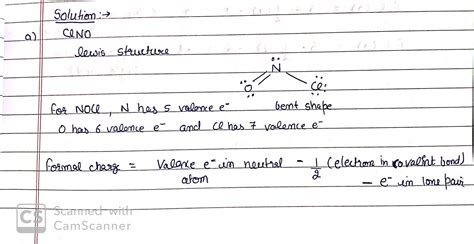 Solution:→
a) ClNO
Lewis structure
N
O Cl
for NOCl, N has 5 valence e⁻ bent shape
O has 6 valence e⁻ and Cl has 7 valence e⁻
formal charge = Valence e⁻ in neutral atom − 1/2 (electrons in covalent bond)
− e⁻ in lone pair
CS Scanned with
CamScanner